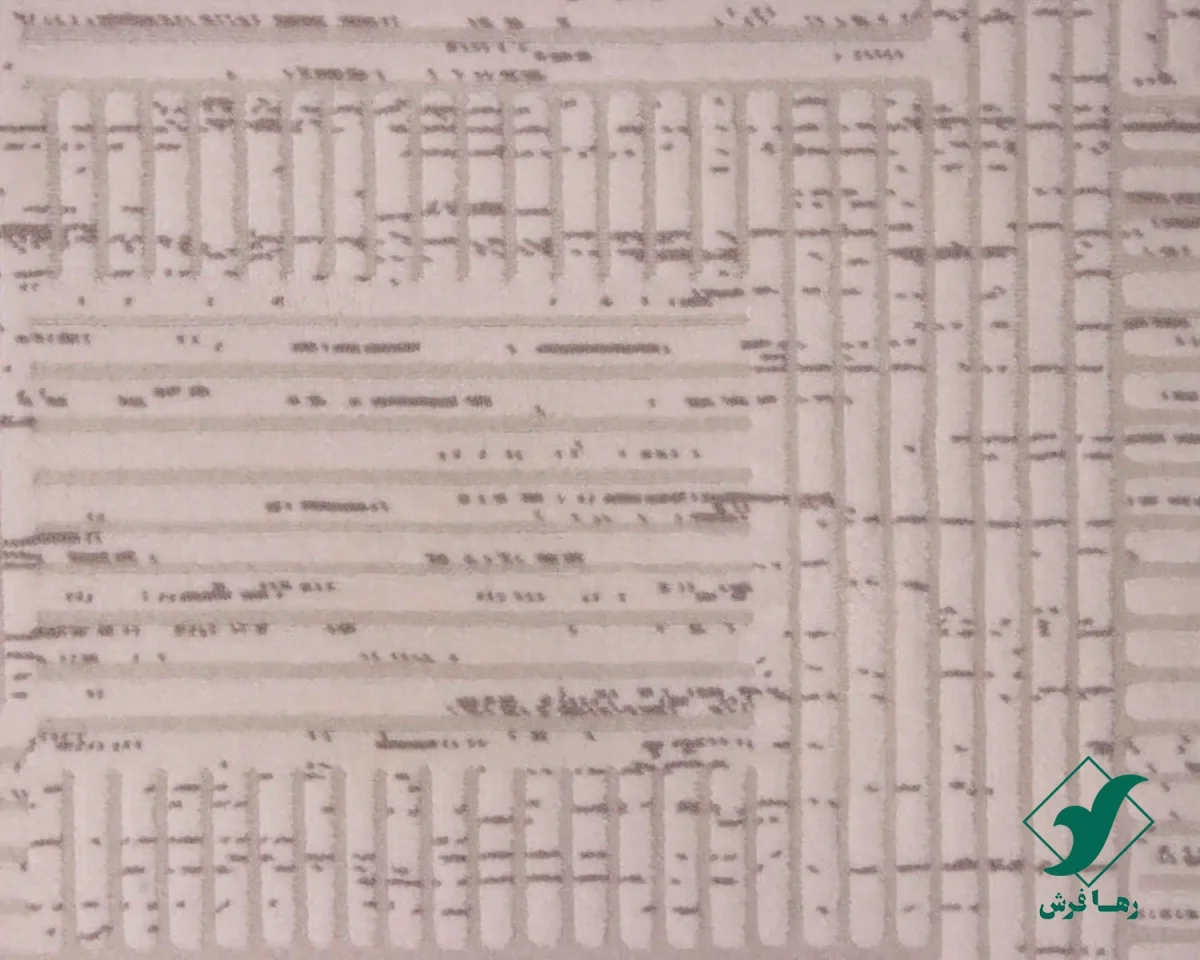 رها فرش